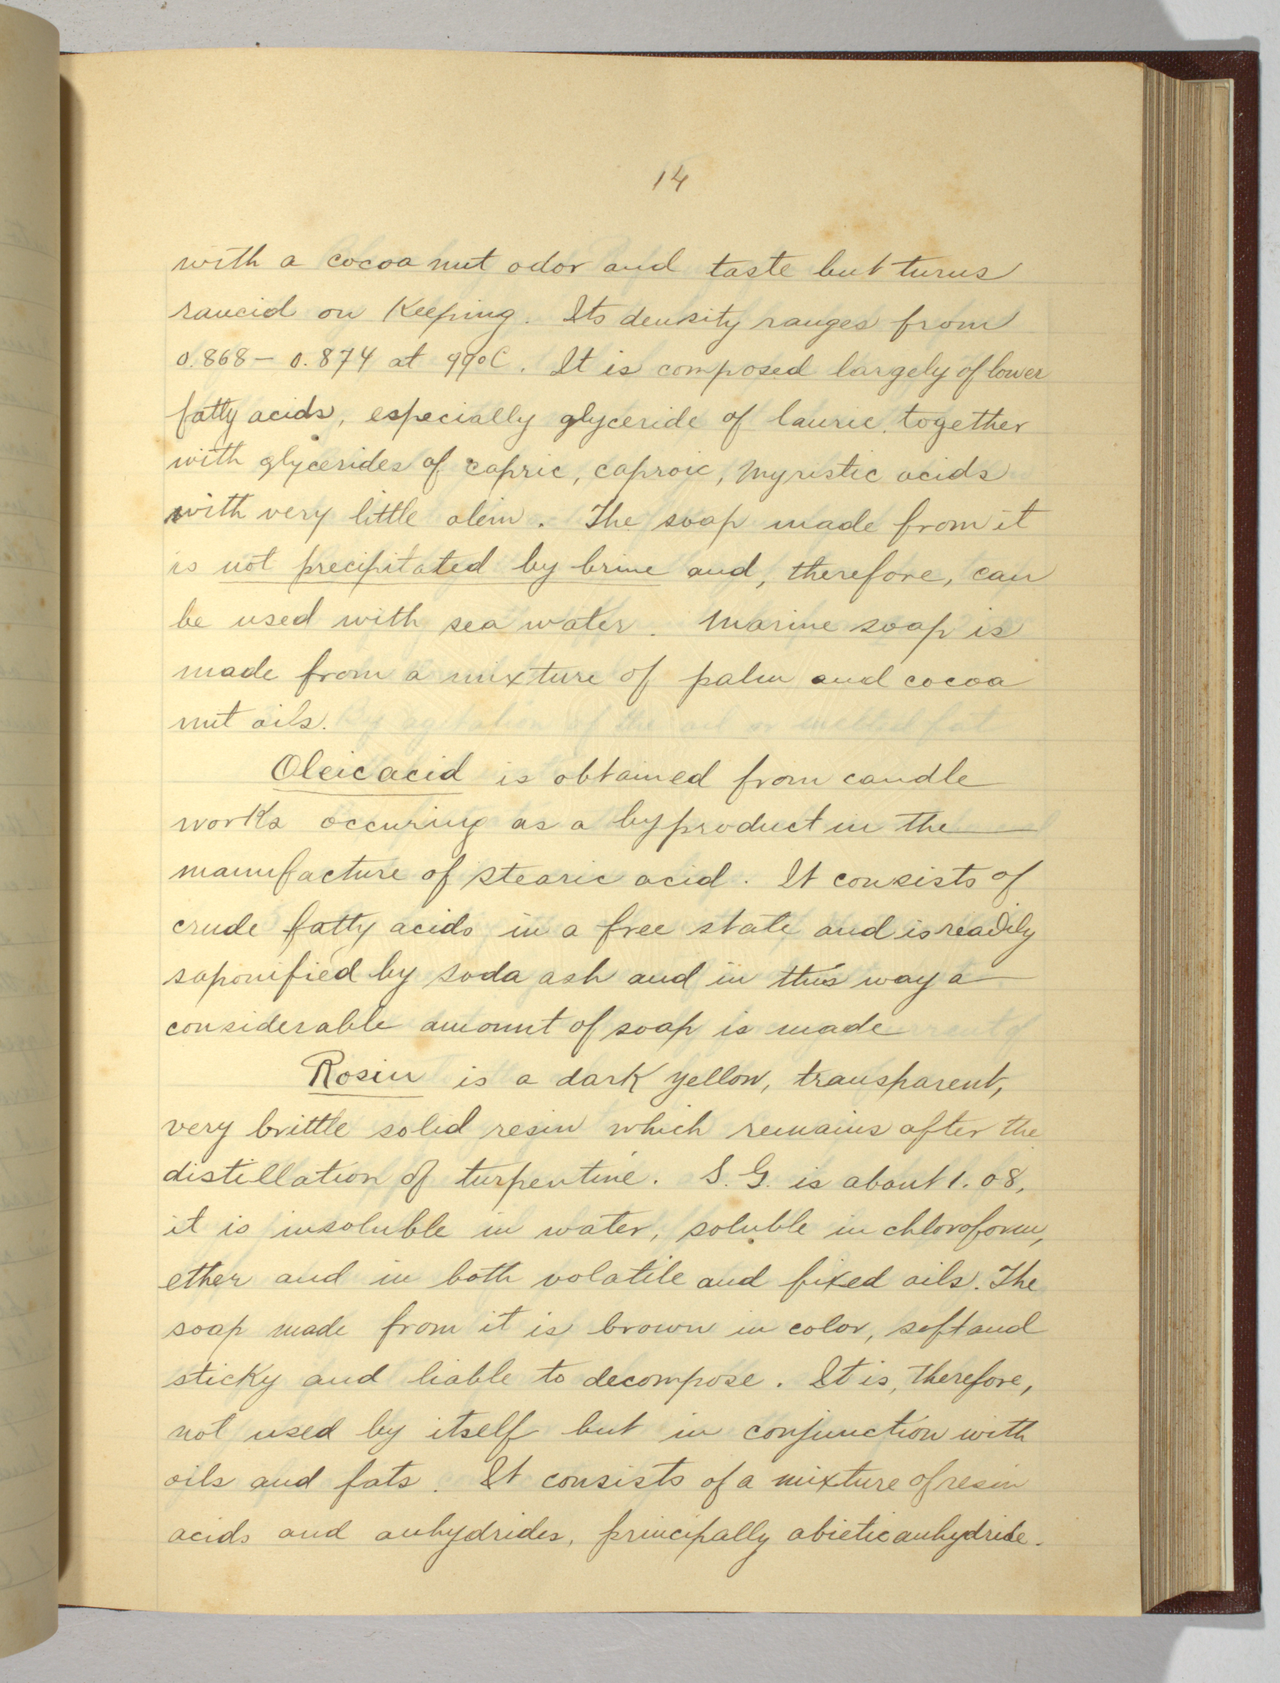 14
with a cocoa nut odor and taste but turns
rancid on Keeping. Its density ranges from
0.868 - 0.874 at 99°C. It is composed largely of lower
fatty acids, especially glyceride of lauric, together
with glycerides of capric, caproic, myristic acids
with very little olein. The soap made from it
is not precipitated by brine and, therefore, can
be used with sea water. Marine soap is
made from a mixture of palm and cocoa
nut oils.
Oleic acid is obtained from candle
works occuring as a byproduct in the
manufacture of stearic acid. It consists of
crude fatty acids in a free state and is readily
saponified by soda ash and in this way a
considerable amount of soap is made
Rosin is a dark yellow, transparent,
very brittle solid resin which remains after the
distillation of turpentine. S.G. is about 1.08,
it is insoluble in water, soluble in chloroform,
ether and in both volatile and fixed oils. The
soap made from it is brown in color, soft and
sticky and liable to decompose. It is, therefore,
not used by itself but in conjunction with
oils and fats. It consists of a mixture of resin
acids and anhydrides, principally abietic anhydride.